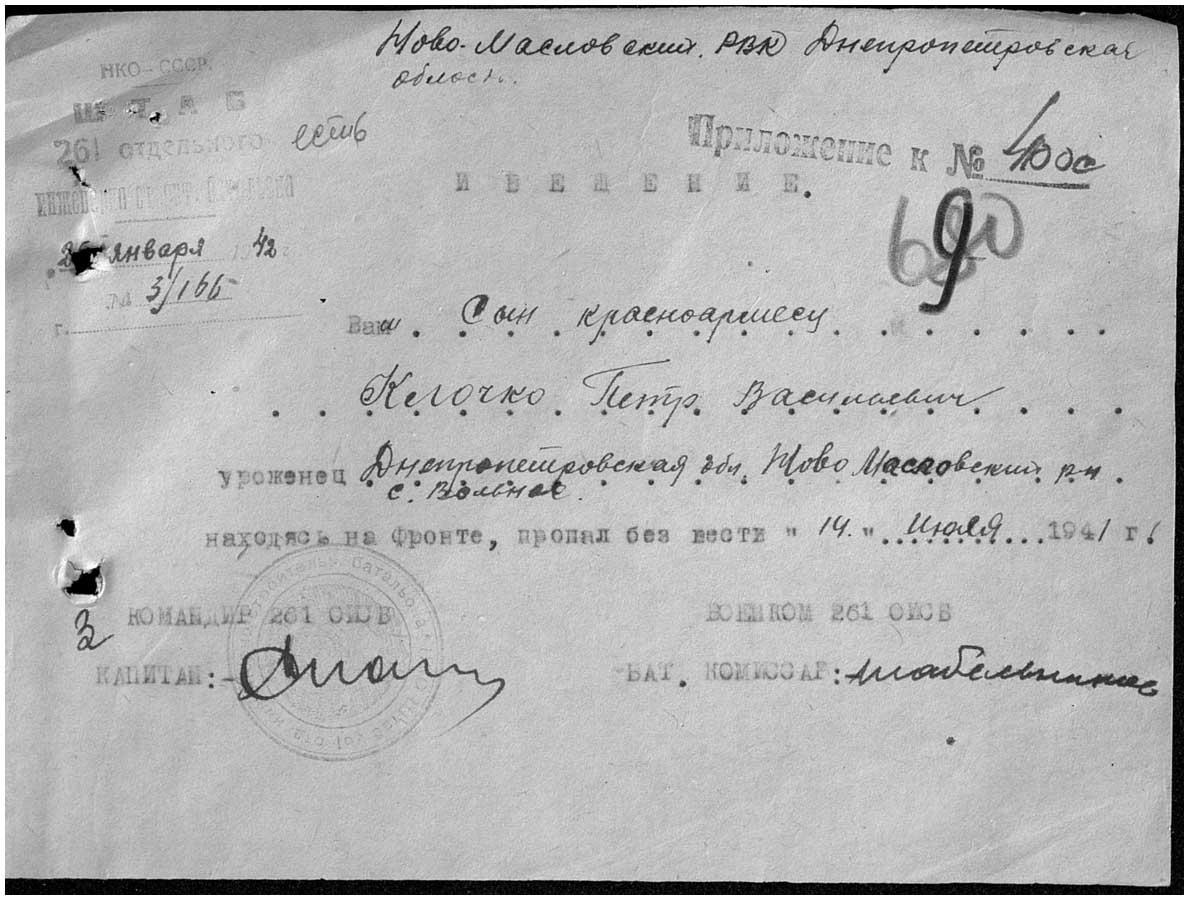 Ново-Масловский. РВК Днепропетровская
область.
НКО-СССР.
ШТАБ
261 отдельного
есть
Приложение к № 400с
ИЗВЕЩЕНИЕ.
680
9
26 января 1942 г.
№ 3/166
г.
Ваш Сын красноармеец
Клочко Петр Васильевич
уроженец Днепропетровская обл. Ново Масловский рн.
с. Вольное.
находясь на фронте, пропал без вести "14." Июля 1941 г.
3
КОМАНДИР 261 ОИСБ
ВОЕНКОМ 261 ОИСБ
КАПИТАН:-
-БАТ. КОМИССАР: